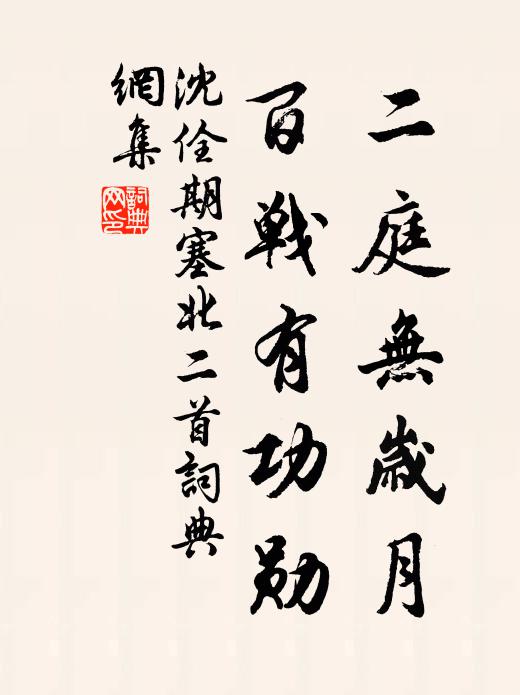 二庭無歲月
百戰有功勛
沈佺期塞北二首詞典
網集
詞典
网印